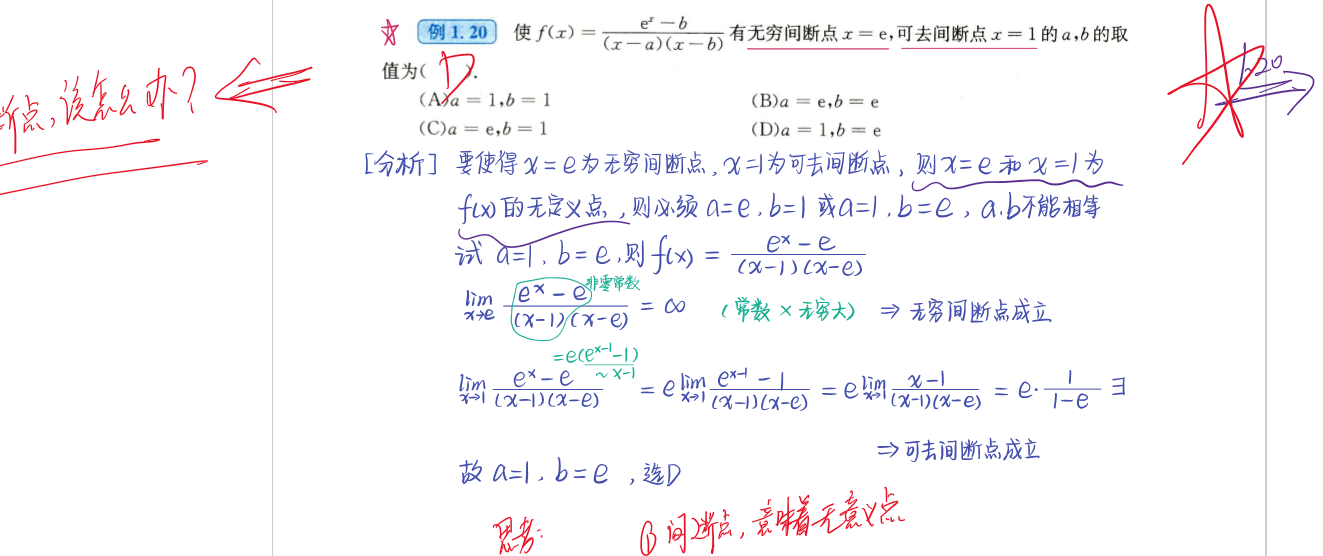 例 1.20 使 f(x) = (e^x − b)/((x − a)(x − b)) 有无穷间断点 x = e,可去间断点 x = 1 的 a,b 的取
值为( D ).
(A)a = 1,b = 1 (B)a = e,b = e
(C)a = e,b = 1 (D)a = 1,b = e
断点,该怎么办?
1.20
[分析] 要使得 x = e 为无穷间断点, x = 1 为可去间断点, 则 x = e 和 x = 1 为
f(x) 的无定义点, 则必须 a = e, b = 1 或 a = 1, b = e, a.b 不能相等
试 a = 1, b = e, 则 f(x) = (e^x − e)/((x−1)(x−e))
lim x→e (e^x − e)/((x−1)(x−e)) = ∞ (常数 × 无穷大) ⇒ 无穷间断点成立
非零常数
= e(e^{x-1} − 1)
~ x−1
lim x→1 (e^x − e)/((x−1)(x−e)) = e lim x→1 (e^{x-1} − 1)/((x−1)(x−e)) = e lim x→1 (x−1)/((x−1)(x−e)) = e · 1/(1−e) ∃
⇒ 可去间断点成立
故 a = 1, b = e, 选D
思考: ① 间断点, 意味着无意义点